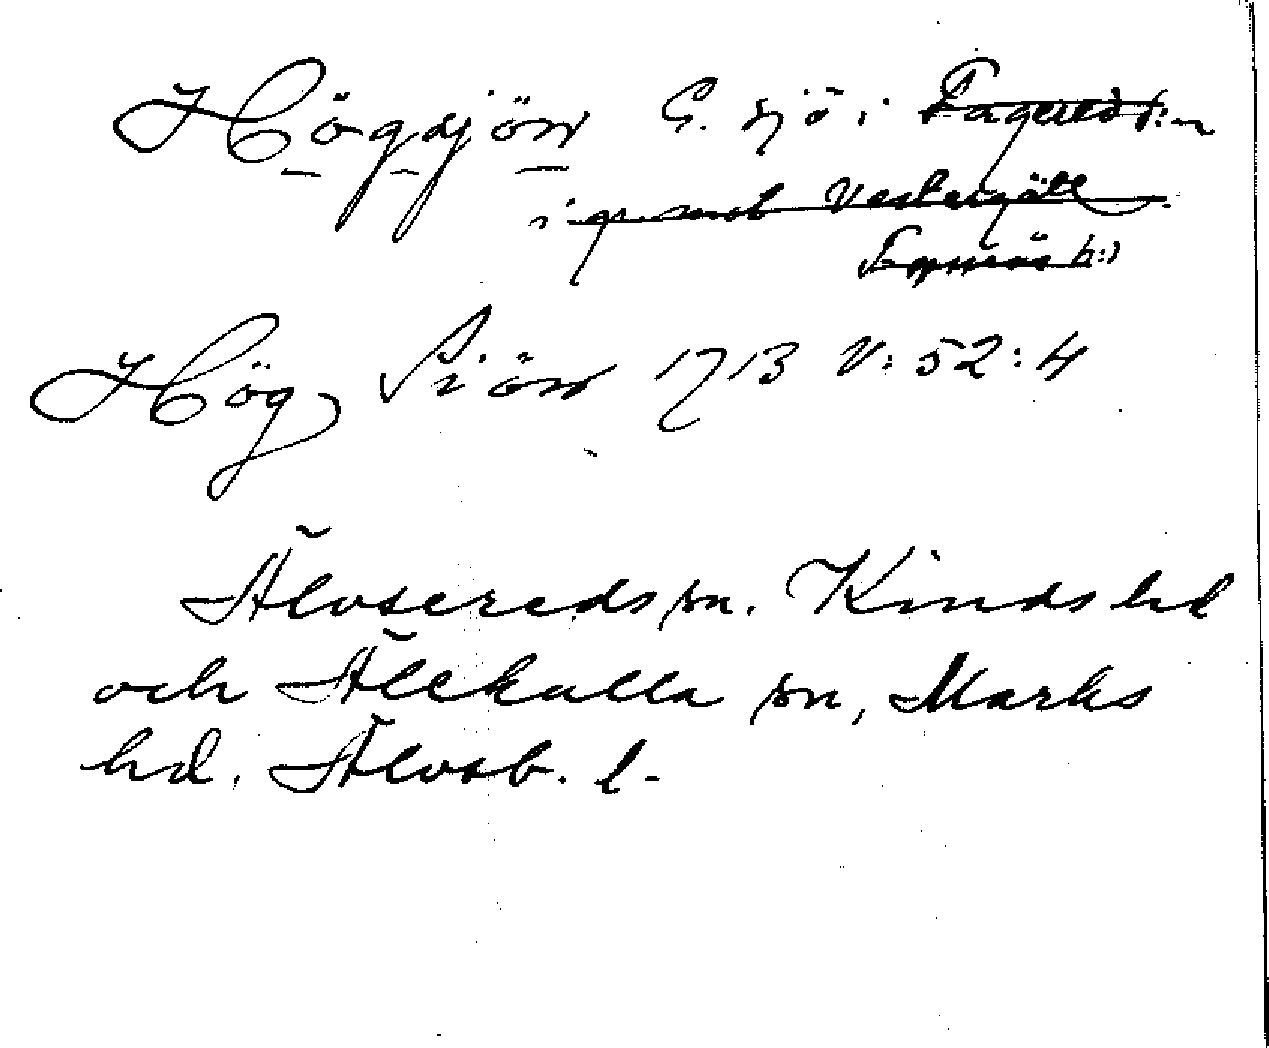 Högsjön G. sjö i Fagered s:n
i gr. mot Vestergötl.
Hög Siön 1713 V: 52: 4
Älvsereds sn. Kinds hd
och Älekulla sn, Marks
hd. Älvsb. l.